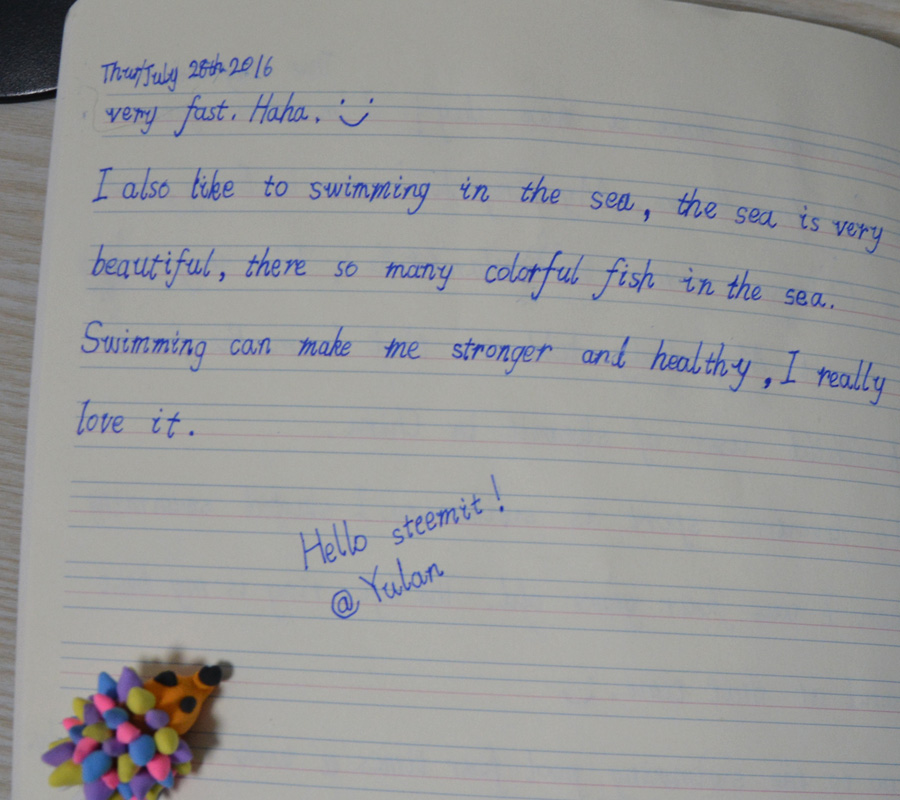 Thur/July 28th 2016
very fast. Haha. :)
I also like to swimming in the sea, the sea is very
beautiful, there so many colorful fish in the sea.
Swimming can make me stronger and healthy, I really
love it.
Hello steemit!
@Yulan